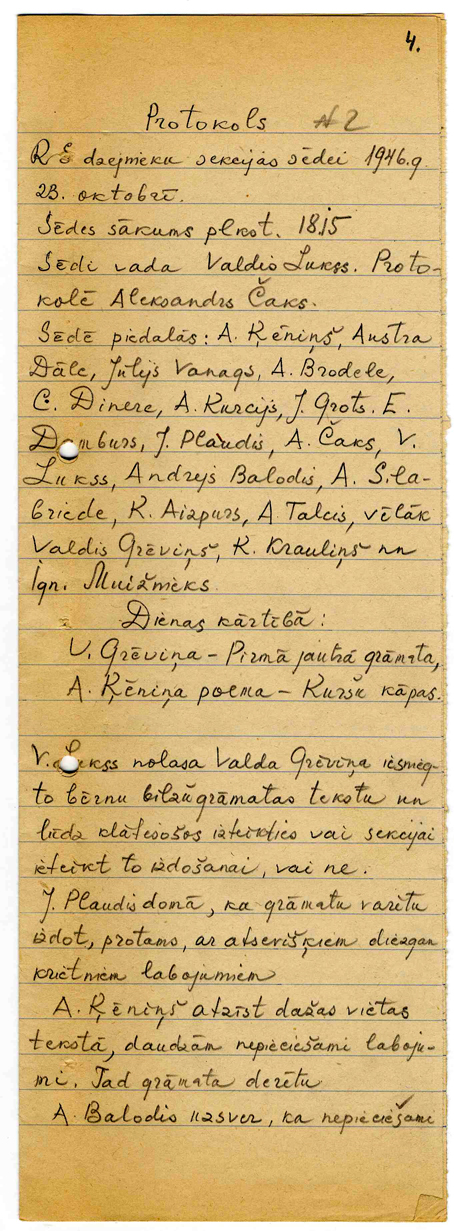 4.
Protokols № 2
R E dzejnieku sekcijas sēdei 1946.g.
23. oktobrī.
Sēdes sākums plkst. 18.15
Sēdi vada Valdis Lukss. Proto-
kolē Aleksandrs Čaks.
Sēdē piedalās: A. Ķēniņš, Austra
Dāle, Jūlijs Vanags, A. Brodele,
C. Dinere, A. Kurcijs, J. Grots. E.
Damburs, J. Plaudis, A. Čaks, V.
Lukss, Andrejs Balodis, A. Sila-
briede, K. Aizpurs, A. Talcis, vēlāk
Valdis Grēviņš, K. Krauliņš un
Ign. Muižnieks.
Dienas kārtībā:
V. Grēviņa – Pirmā jautrā grāmata,
A. Ķēniņa poema – Kuršu kāpas.
V. Lukss nolasa Valda Grēviņa iesnieg-
to bērnu bilžu grāmatas tekstu un
lūdz klātesošos izteikties vai sekcijai
ieteikt to izdošanai, vai ne.
J. Plaudis domā, ka grāmatu varētu
izdot, protams, ar atsevišķiem diezgan
krietniem labojumiem
A. Ķēniņš atzīst dažas vietas
tekstā, daudzām nepieciešami laboju-
mi. Tad grāmata derētu
A. Balodis uzsver, ka nepieciešami